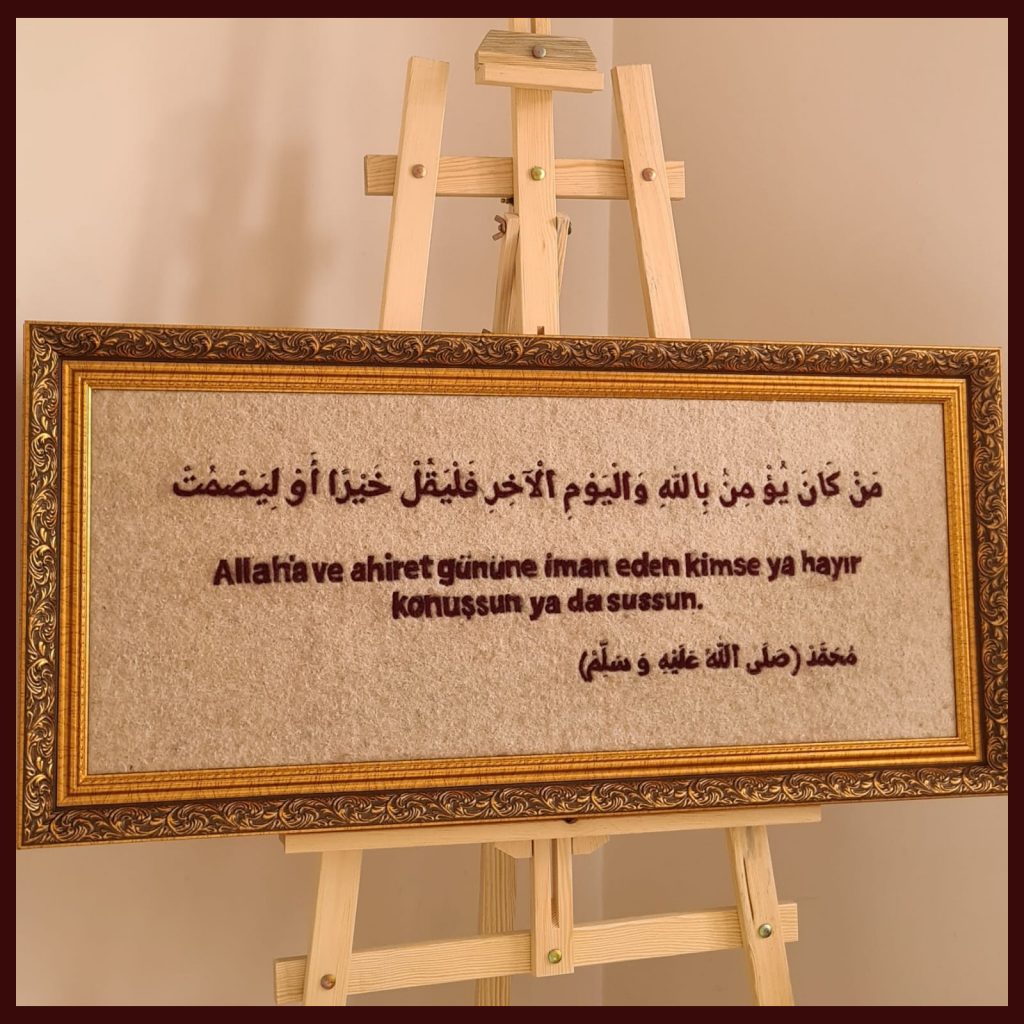 مَنْ كَانَ يُؤْ مِنُ بِاللهِ وَالْيَوْمِ ٱلْآخِرِ فَلْيَقُلْ خَيْرًا أَوْ لِيَصْمُتْ
Allah'a ve ahiret gününe iman eden kimse ya hayır
konuşsun ya da sussun.
مُحَمَّدْ (صَلَى ٱللّٰهُ عَلَيْهِ وَ سَلَّمْ)